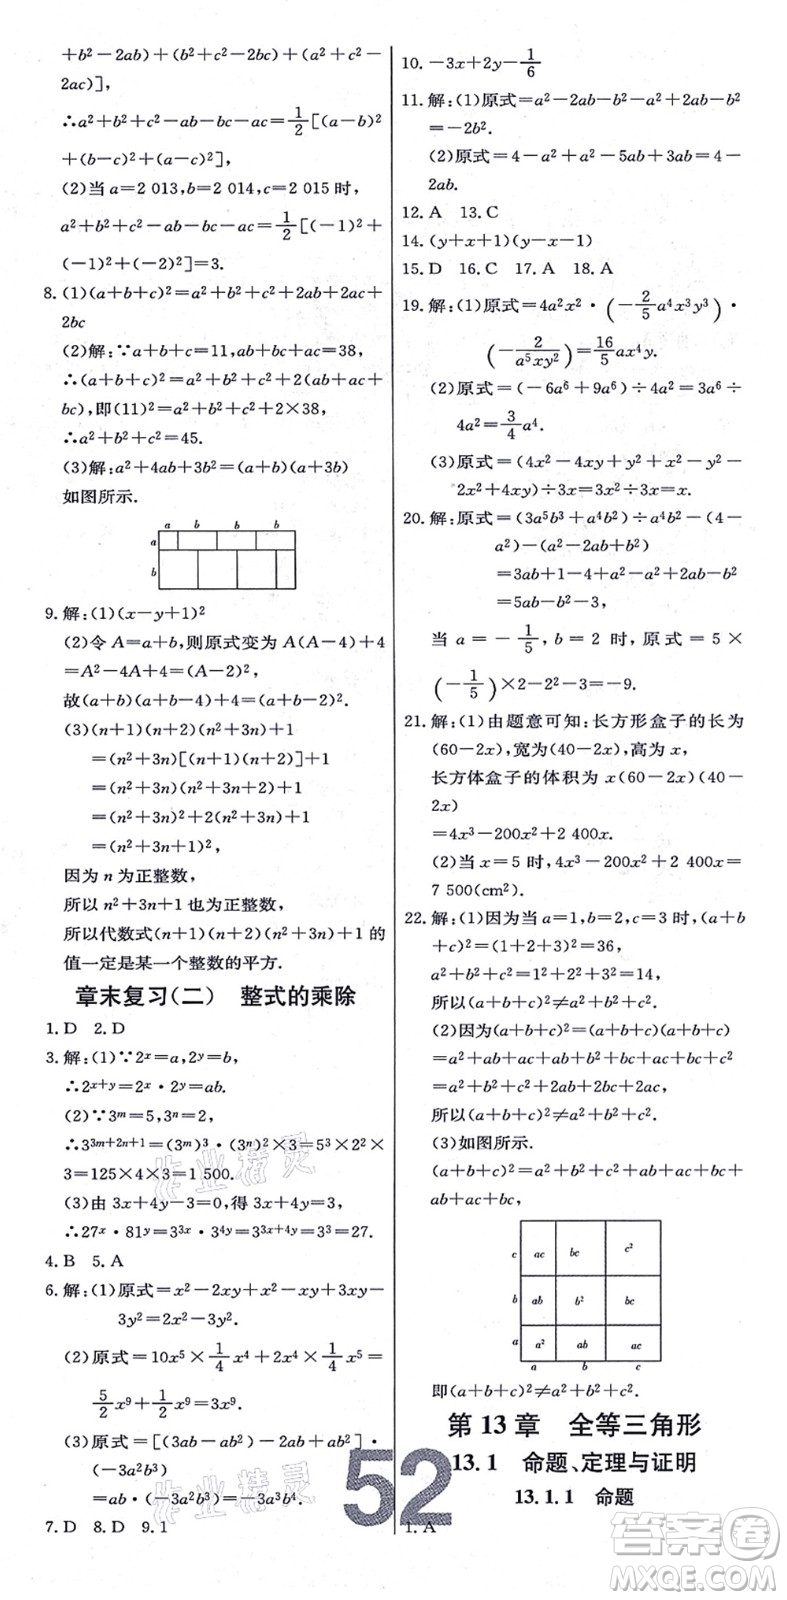 +b²-2ab)+(b²+c²-2bc)+(a²+c²-
2ac)],
∴a²+b²+c²-ab-bc-ac=1/2[(a-b)²
+(b-c)²+(a-c)²],
(2)当 a=2 013,b=2 014,c=2 015 时,
a²+b²+c²-ab-bc-ac=1/2[(-1)²+
(-1)²+(-2)²]=3.
8. (1)(a+b+c)²=a²+b²+c²+2ab+2ac+
2bc
(2)解:∵a+b+c=11,ab+bc+ac=38,
∴(a+b+c)²=a²+b²+c²+2(ab+ac+
bc),即(11)²=a²+b²+c²+2×38,
∴a²+b²+c²=45.
(3)解:a²+4ab+3b²=(a+b)(a+3b)
如图所示.
a b b b
a
b
9. 解:(1)(x-y+1)²
(2)令 A=a+b,则原式变为 A(A-4)+4
=A²-4A+4=(A-2)²,
故(a+b)(a+b-4)+4=(a+b-2)².
(3)(n+1)(n+2)(n²+3n)+1
=(n²+3n)[(n+1)(n+2)]+1
=(n²+3n)(n²+3n+2)+1
=(n²+3n)²+2(n²+3n)+1
=(n²+3n+1)²,
因为 n 为正整数,
所以 n²+3n+1 也为正整数,
所以代数式(n+1)(n+2)(n²+3n)+1 的
值一定是某一个整数的平方.
章末复习(二) 整式的乘除
1. D 2. D
3. 解:(1)∵2ˣ=a,2ʸ=b,
∴2ˣ⁺ʸ=2ˣ·2ʸ=ab.
(2)∵3ᵐ=5,3ⁿ=2,
∴3³ᵐ⁺²ⁿ⁺¹=(3ᵐ)³·(3ⁿ)²×3=5³×2²×
3=125×4×3=1 500.
(3)由 3x+4y-3=0,得 3x+4y=3,
∴27ˣ·81ʸ=3³ˣ·3⁴ʸ=3³ˣ⁺⁴ʸ=3³=27.
4. B 5. A
6. 解:(1)原式=x²-2xy+x²-xy+3xy-
3y²=2x²-3y².
(2)原式=10x⁵×1/4x⁴+2x⁴×1/4x⁵=
5/2x⁹+1/2x⁹=3x⁹.
(3)原式=[(3ab-ab)-2ab+(ab)²]·
(-ab)³
=ab·(-2)+(ab)²]·
7. D 8. D 9. 1
10. -3x+2y-1/6
11. 解:(1)原式=a²-2ab-b²-a²+2ab-b²
=-2b².
(2)原式=4-a²+a²-5ab+3ab=4-
2ab.
12. A 13. C
14. (y+x+1)(y-x-1)
15. D 16. C 17. A 18. A
19. 解:(1)原式=4a²x²·(-2/5a⁴x³y³)·
(-2/a⁵xy²)=16/5ax⁴y.
(2)原式=(-6a⁶+9a⁶)÷4a²=3a⁶÷
4a²=3/4a⁴.
(3)原式=(4x²-4xy+y²+x²-y²-
2x²+4xy)÷3x=3x²÷3x=x.
20. 解:原式=(3a⁵b³+a⁴b²)÷a⁴b²-(4-
a²)-(a²-2ab+b²)
=3ab+1-4+a²-a²+2ab-b²
=5ab-b²-3,
当 a=-1/5,b=2 时,原式=5×
(-1/5)×2-2²-3=-9.
21. 解:(1)由题意可知:长方形盒子的长为
(60-2x),宽为(40-2x),高为 x,
长方体盒子的体积为 x(60-2x)(40-
2x)
=4x³-200x²+2 400x.
(2)当 x=5 时,4x³-200x²+2 400x=
7 500(cm²).
22. 解:(1)因为当 a=1,b=2,c=3 时,(a+b
+c)²=(1+2+3)²=36,
a²+b²+c²=1²+2²+3²=14,
所以(a+b+c)²≠a²+b²+c².
(2)因为(a+b+c)²=(a+b+c)(a+b+c)
=a²+ab+ac+ab+b²+bc+ac+bc+c²
=a²+b²+c²+2ab+2bc+2ac,
所以(a+b+c)²≠a²+b²+c².
(3)如图所示.
(a+b+c)²=a²+b²+c²+ab+ac+ab+
ab+ac+ac+bc,
c ac bc c²
b ab b² bc
a a² ab ac
a b c
即(a+b+c)²≠a²+b²+c².
第 13 章 全等三角形
13.1 命题、定理与证明
13.1.1 命题
1. A
52
作业精灵
作业精灵
答案圈
MXQE.COM